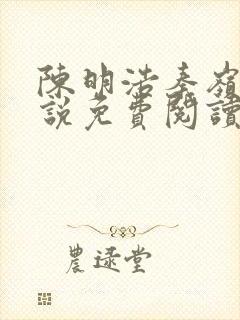 陳明浩秦嶺
說免費閱讀
農逯堂